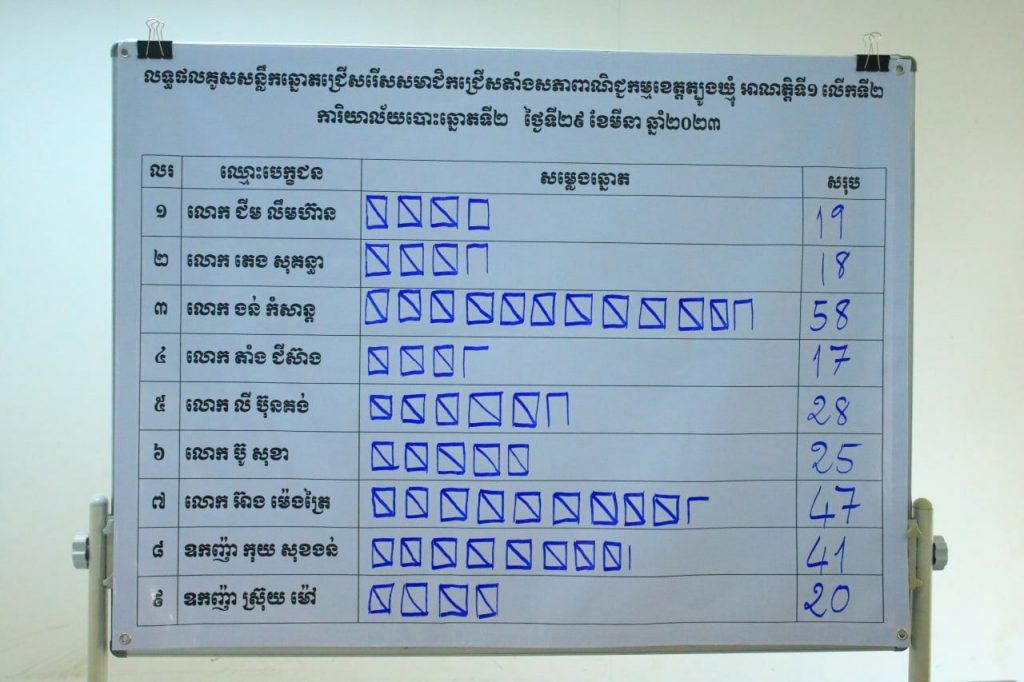 លទ្ធផលគូសសន្លឹកឆ្នោតជ្រើសរើសសមាជិកជ្រើសតាំងសភាពាណិជ្ជកម្មខេត្តត្បូងឃ្មុំ អាណត្តិទី១ លើកទី២
ការិយាល័យបោះឆ្នោតទី២ ថ្ងៃទី២៩ ខែមីនា ឆ្នាំ២០២៣
លរ ឈ្មោះបេក្ខជន សម្លេងឆ្នោត សរុប
១ លោក ជីម លឹមហ៊ាន 19
២ លោក តេង សុគន្ធា 18
៣ លោក ងន់ កំសាន្ត 58
៤ លោក តាំង ជីស៊ាង 17
៥ លោក លី ប៊ុនគង់ 28
៦ លោក ប៊ូ សុខា 25
៧ លោក អ៊ាង ម៉េងត្រៃ 47
៨ ឧកញ៉ា កុយ សុខងន់ 41
៩ ឧកញ៉ា ស្រ៊ុយ ម៉ៅ 20